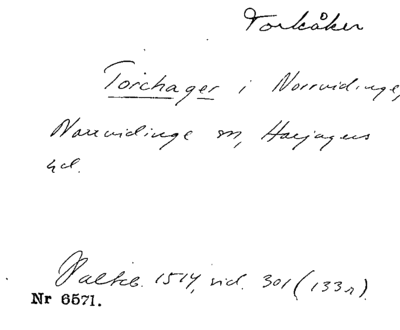 Torkåker
Torchager i Norrvidinge,
Norrvidinge sn, Harjagers
hd.
Palteb. 1514, sid. 301 (133r).
Nr 6571.